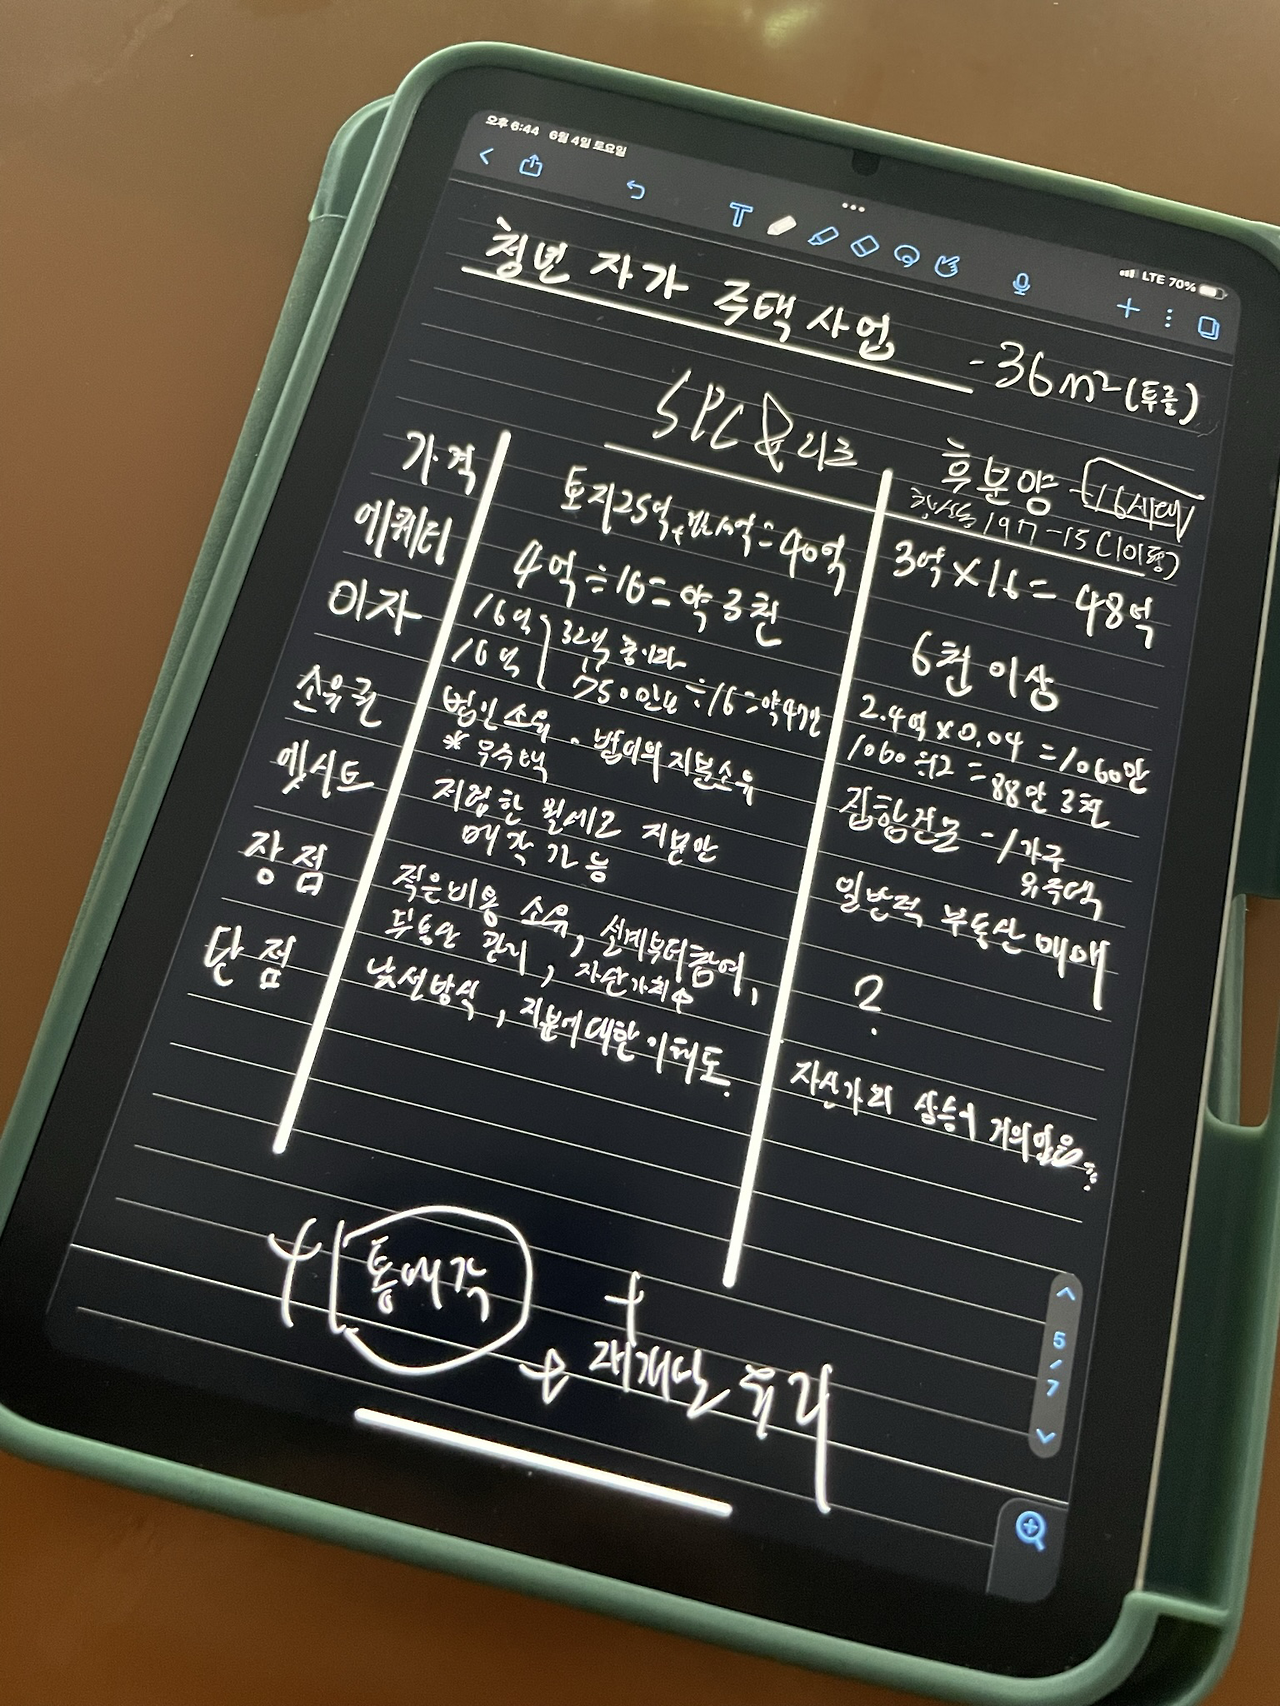 오후 6:44 6월 4일 토요일
LTE 70%
청년 자가 주택사업 - 36m²(투룸)
SPC & 리츠
후분양 -16세대
197-15 (101동)
가격 토지25억, =40억 3억×16=48억
에쿼티 4억÷16=약 3천 6천 이상
이자 16억 16억 32억 750만 ÷16=약47만
2.4억×0.04=1060만
1060÷12=88만 3천
소유권 법인소유 - 법인의 지분소유
*무주택
집합건물 - 1가구
유주택
엑시트 저렴한 월세로 지분만
매각 가능
일반적 부동산 매매
장점 적은비용 소유, 설계부터참여,
부동산 관리, 자산가치
?
단점 낯선방식, 지분에대한이해도.
자산가치 상승이 거의없음
+ 통매각
+
재개발 유리
5
/
7